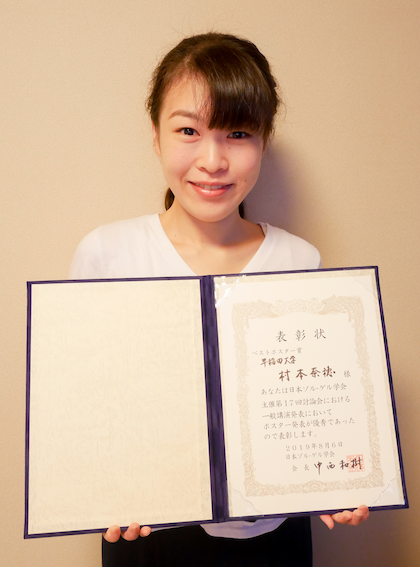 表彰状
ベストポスター賞
早稲田大学
村本奈穂 様
あなたは日本ゾルーゲル学会
主催第17回討論会における
一般講演発表において
ポスター発表が優秀であった
ので表彰します。
2019年8月6日
日本ゾルーゲル学会
会長 中西和樹